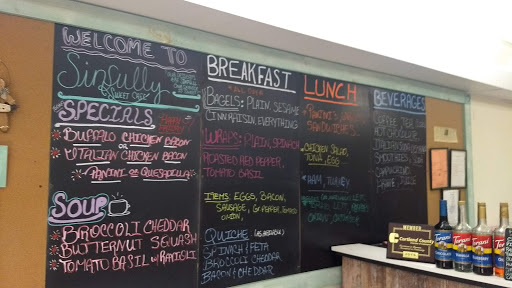 WELCOME TO
Sinfully
Sweet Cafe
SPECIALS
BUFFALO CHICKEN BACON
OR
ITALIAN CHICKEN BACON
PANINI OR QUESADILLA
SOUP
BROCCOLI CHEDDAR
BUTTERNUT SQUASH
TOMATO BASIL W/RAVIOLI
BREAKFAST
ALL DAY
BAGELS: PLAIN, SESAME
CINN RAISIN, EVERYTHING
WRAPS: PLAIN, SPINACH
ROASTED RED PEPPER,
TOMATO BASIL
ITEMS: EGGS, BACON,
SAUSAGE, GR.PEPPER, TOMATO
ONION,
QUICHE
SPINACH & FETA
BROCCOLI CHEDDAR
BACON & CHEDDAR
LUNCH
PANINI'S
SANDWICHES
CHICKEN SALAD,
TUNA, EGG
HAM, TURKEY
BEVERAGES
COFFEE TEA
HOT CHOCOLATE
ITALIAN
SMOOTHIES
CAPPUCCINO
JUICE
MEMBER
Cortland County
TORANI
TORANI
TORANI